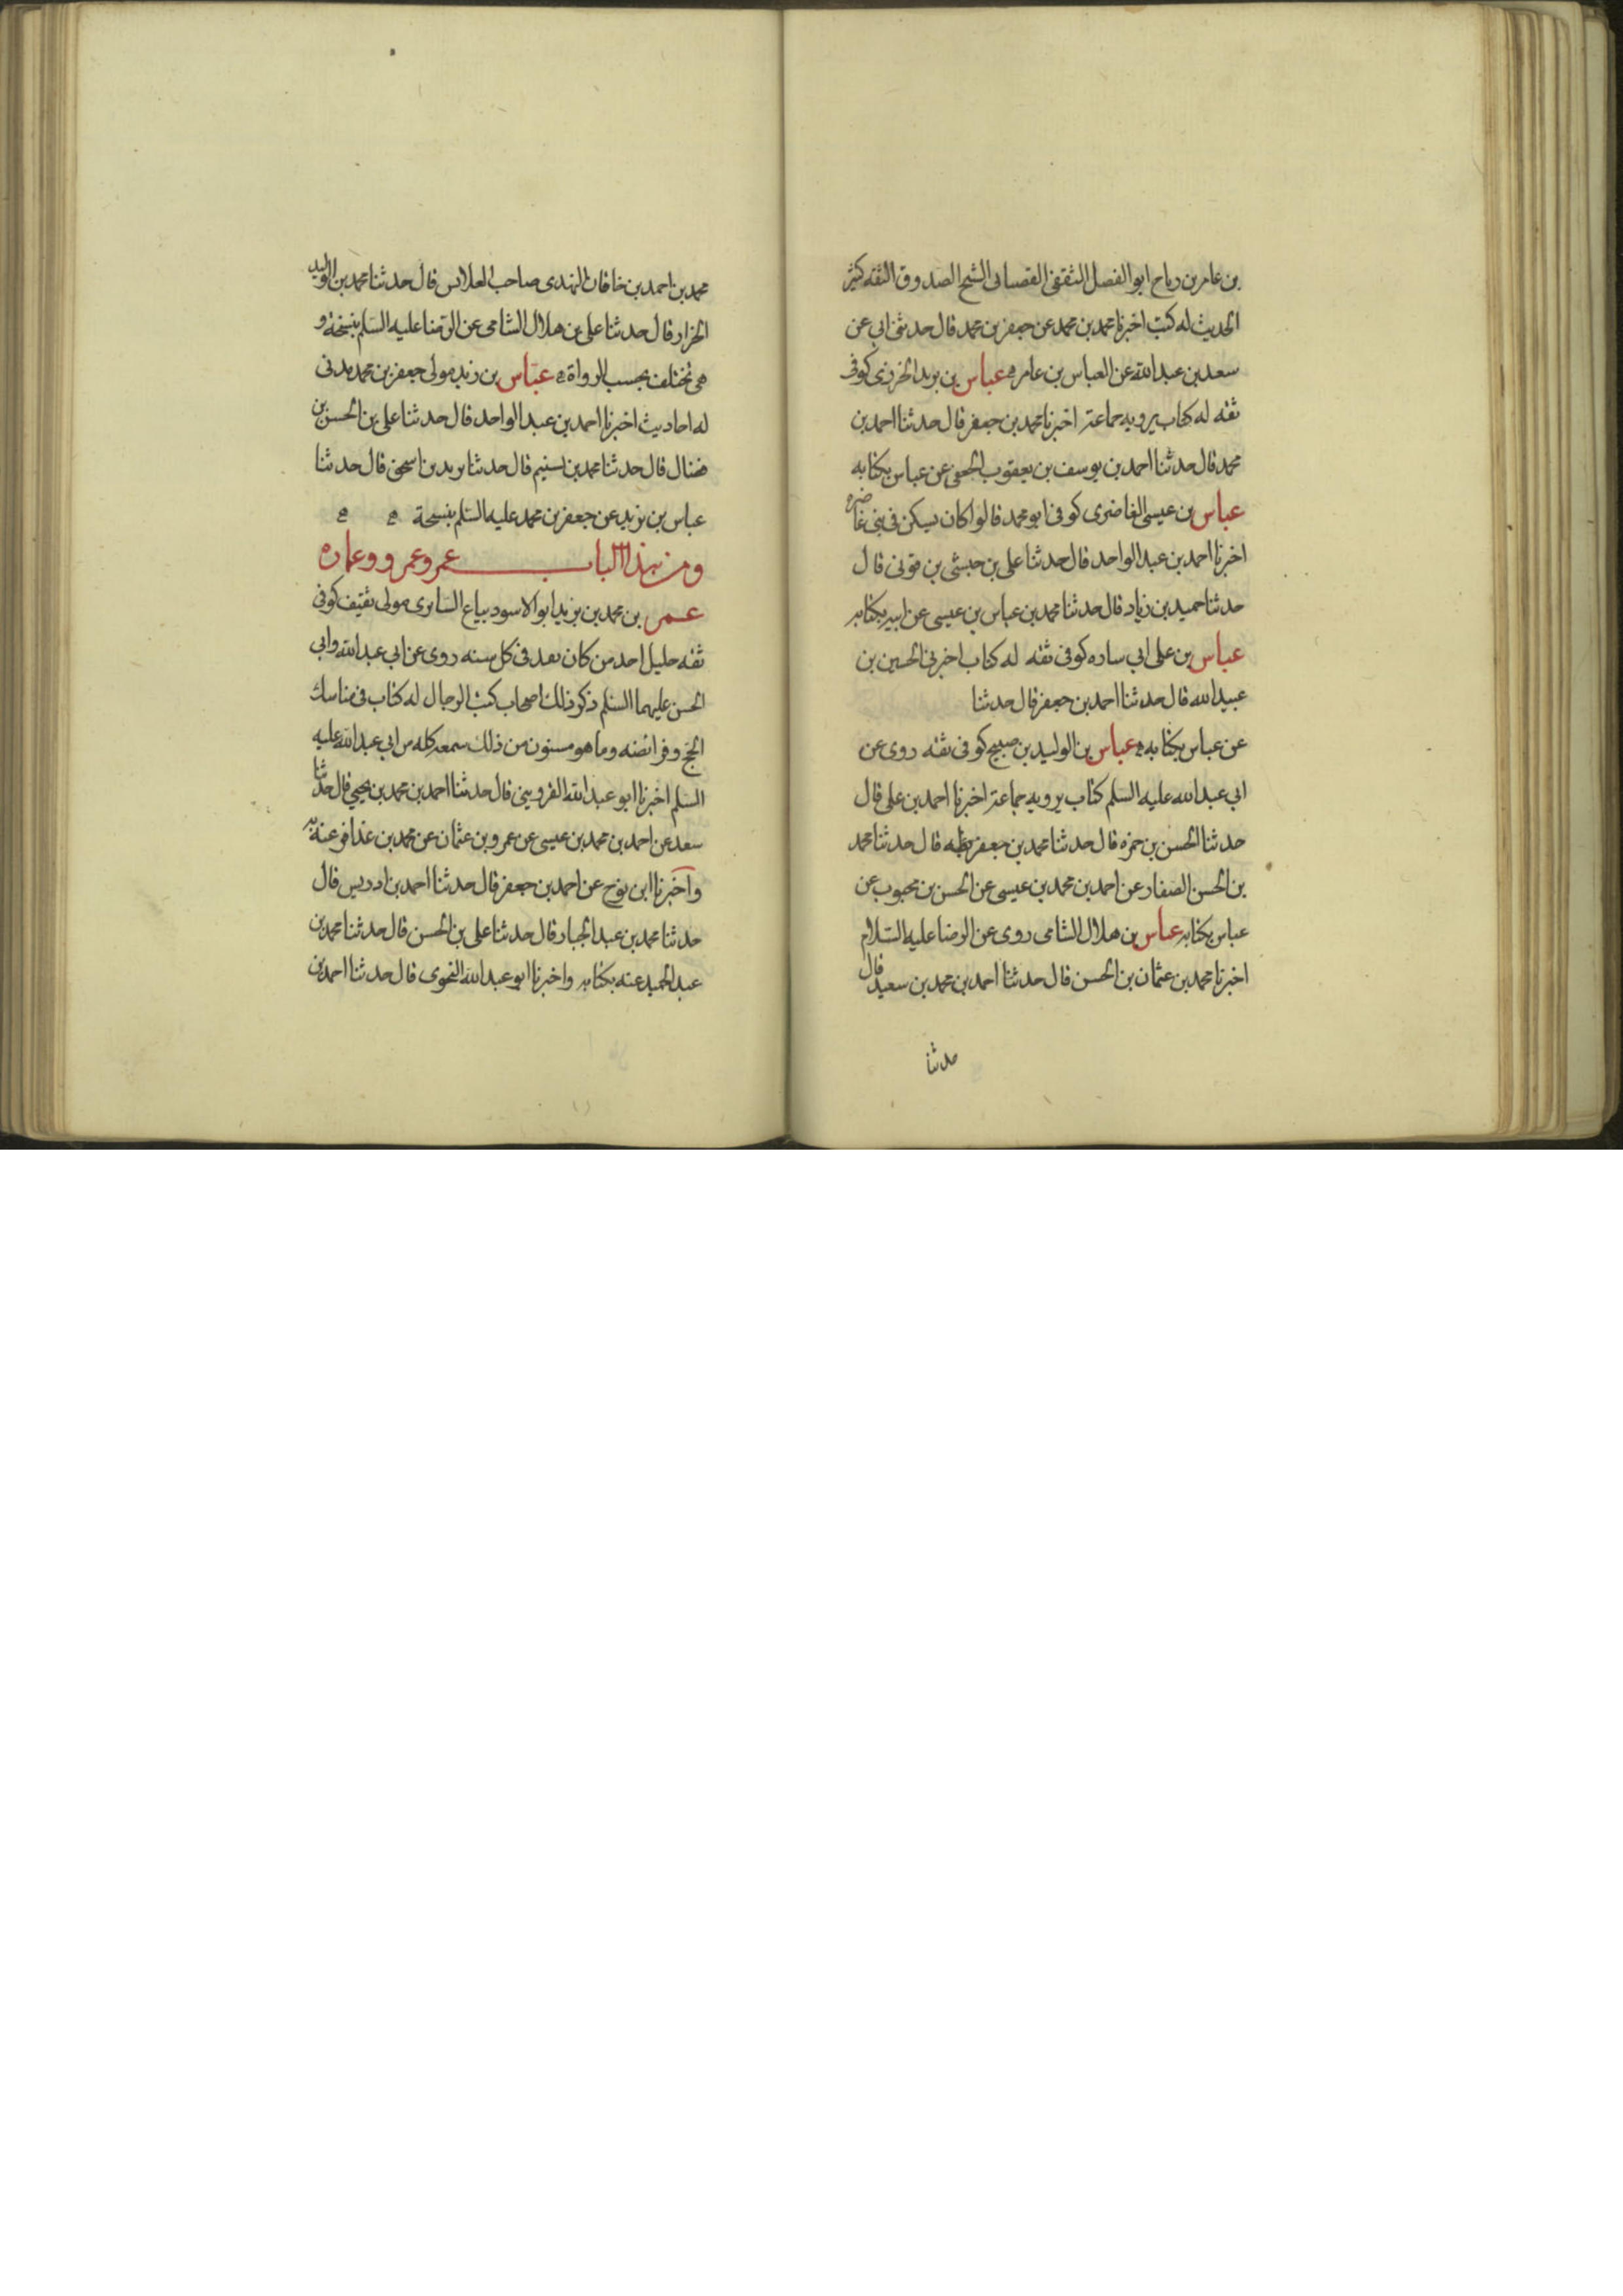 بن عامر بن رباح ابو الفضل الثقفي القصباني الشيخ الصدوق الثقه كثير
الحديث له كتب اخبرنا محمد بن محمد عن جعفر بن محمد قال حدثني ابي عن
سعد بن عبد الله عن العباس بن عامر عباس بن يزيد الخرزي كوفي
ثقه له كتاب يرويه جماعة اخبرنا محمد بن جعفر قال حدثنا احمد بن
محمد قال حدثنا احمد بن يوسف بن يعقوب الجعفي عن عباس بكتابه
عباس بن عيسى الغاضري كوفي ابو محمد قالوا كان يسكن في بني غاضره
اخبرنا احمد بن عبد الواحد قال حدثنا علي بن حبشي بن قوني قال
حدثنا حميد بن زياد قال حدثنا محمد بن عباس بن عيسى عن ابيه بكتابه
عباس بن علي ابي ساره كوفي ثقه له كتاب اخبرني الحسين بن
عبيد الله قال حدثنا احمد بن جعفر قال حدثنا
عن عباس بكتابه عباس بن الوليد بن صبيح كوفي ثقه روى عن
ابي عبد الله عليه السلم كتاب يرويه جماعة اخبرنا احمد بن علي قال
حدثنا الحسن بن حمزه قال حدثنا محمد بن جعفر بطه قال حدثنا محمد
بن الحسن الصفار عن احمد بن محمد بن عيسى عن الحسن بن محبوب عن
عباس بكتابه عباس بن هلال الشامي روى عن الرضا عليه السلام
اخبرنا محمد بن عثمان بن الحسن قال حدثنا احمد بن محمد بن سعيد قال
حدثنا
محمد بن احمد بن خاقان النهدي صاحب القلانس قال حدثنا محمد بن الوليد
الخزاز قال حدثنا علي بن هلال الشامي عن الرضا عليه السلم بنسخة و
هي تختلف بحسب الرواة عباس بن زيد مولى جعفر بن محمد مدني
له احاديث اخبرنا احمد بن عبد الواحد قال حدثنا علي بن الحسن بن
فضال قال حدثنا محمد بن تسنيم قال حدثنا يزيد بن اسحق قال حدثنا
عباس بن يزيد عن جعفر بن محمد عليه السلم بنسخة
ومن هذا الباب عمر وعمرو وعماره
عمر بن محمد بن يزيد ابو الاسود بياع السابري مولى ثقيف كوفي
ثقه جليل احد من كان يفد في كل سنه روى عن ابي عبد الله وابي
الحسن عليهما السلم ذكر ذلك اصحاب كتب الرجال له كتاب في مناسك
الحج وفرائضه وما هو مسنون من ذلك سمعه كله من ابي عبد الله عليه
السلم اخبرنا ابو عبد الله القزويني قال حدثنا احمد بن محمد بن يحيى قال حدثنا
سعد عن احمد بن محمد بن عيسى عن عمرو بن عثمان عن محمد بن عذافر عنه به
واخبرنا ابن نوح عن احمد بن جعفر قال حدثنا احمد بن ادريس قال
حدثنا محمد بن عبد الجبار قال حدثنا علي بن الحسن قال حدثنا محمد بن
عبد الحميد عنه بكتابه واخبرنا ابو عبد الله النحوي قال حدثنا احمد بن